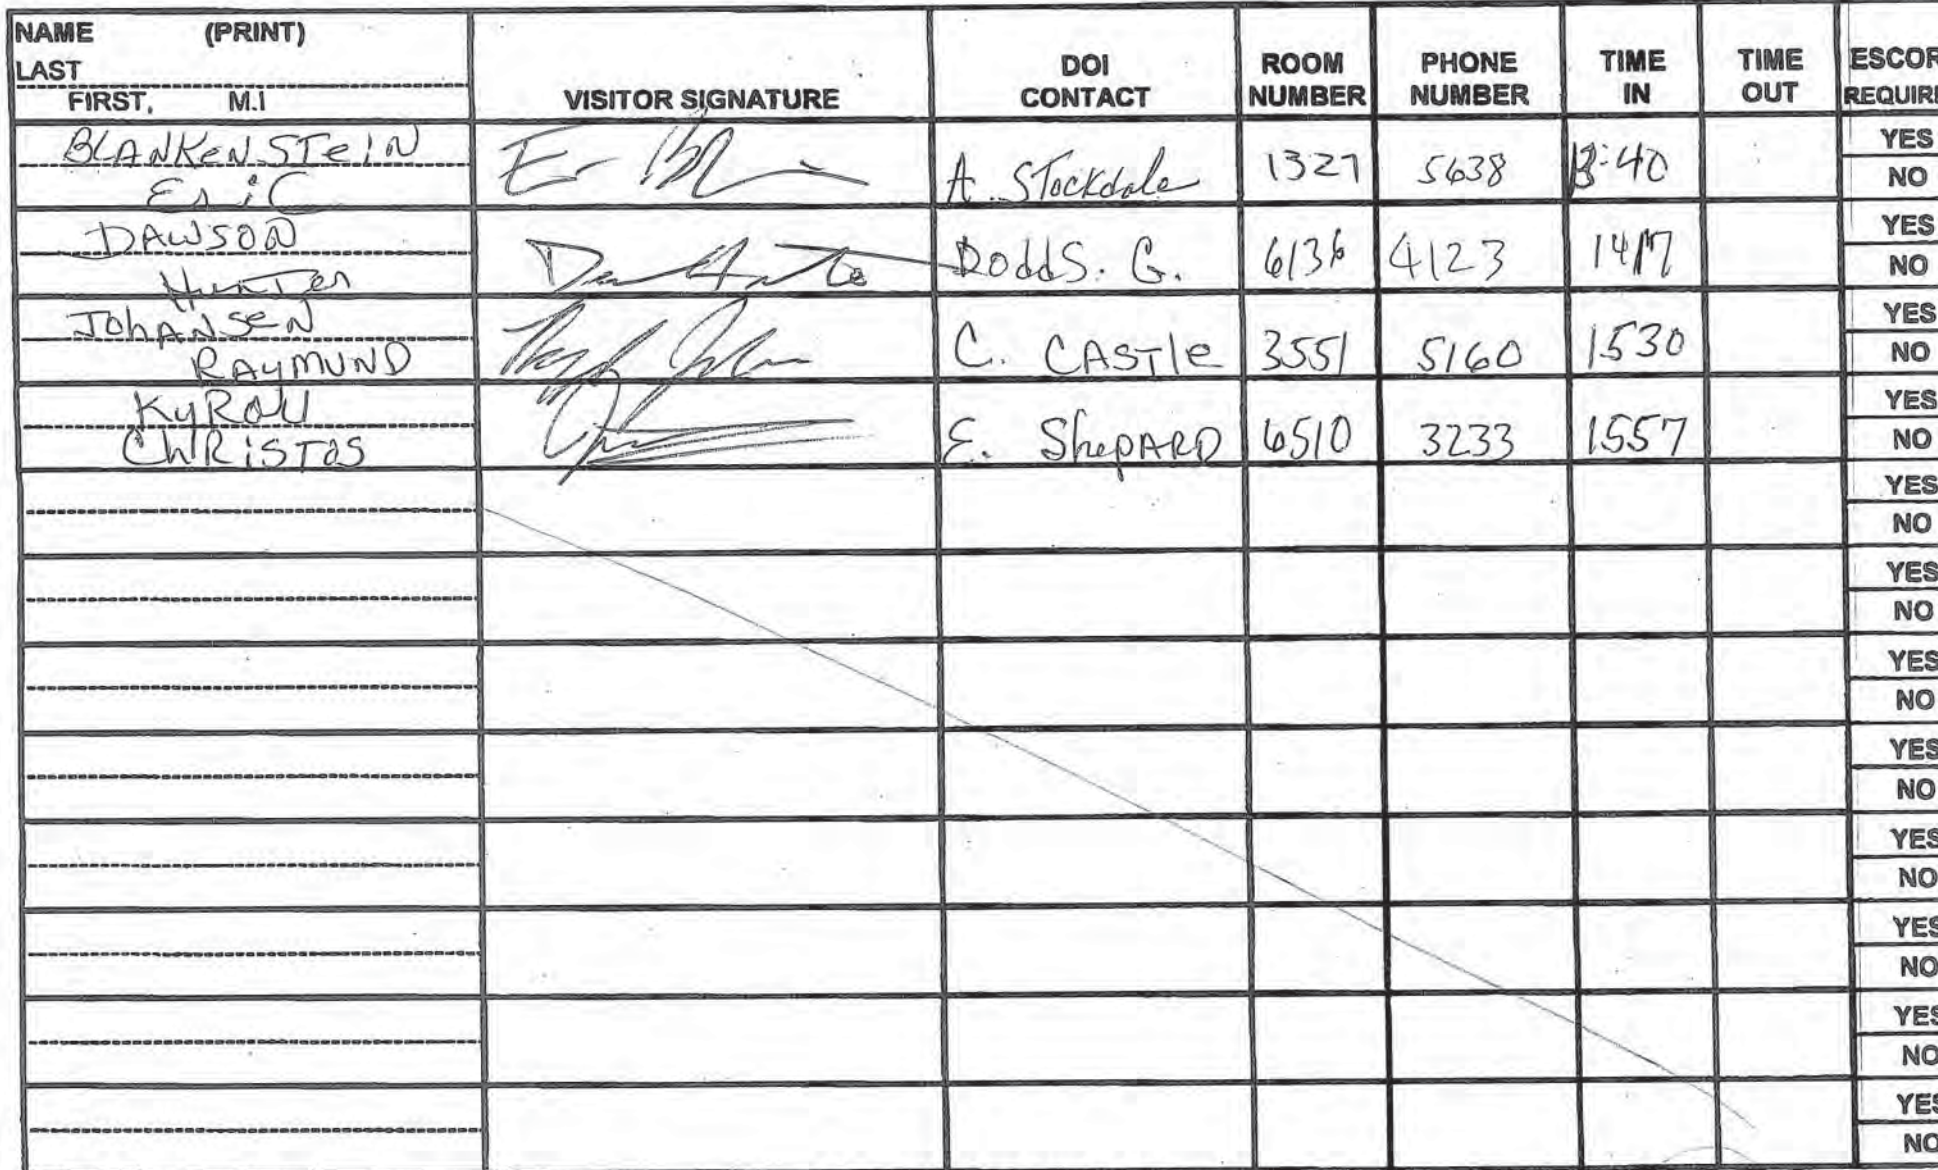 NAME (PRINT)
LAST
FIRST, M.I
VISITOR SIGNATURE
DOI
CONTACT
ROOM
NUMBER
PHONE
NUMBER
TIME
IN
TIME
OUT
ESCOR
REQUIRE
BLANKENSTEIN
ERIC
A. Stockdale 1327 5638 13:40
YES
NO
DAWSON
HUNTER
Dodds. G. 6136 4123 1417
YES
NO
JOHANSEN
RAYMUND
C. CASTLE 3551 5160 1530
YES
NO
KYROU
CHRISTOS
E. SHEPARD 6510 3233 1557
YES
NO
YES
NO
YES
NO
YES
NO
YES
NO
YES
NO
YES
NO
YES
NO
YES
NO